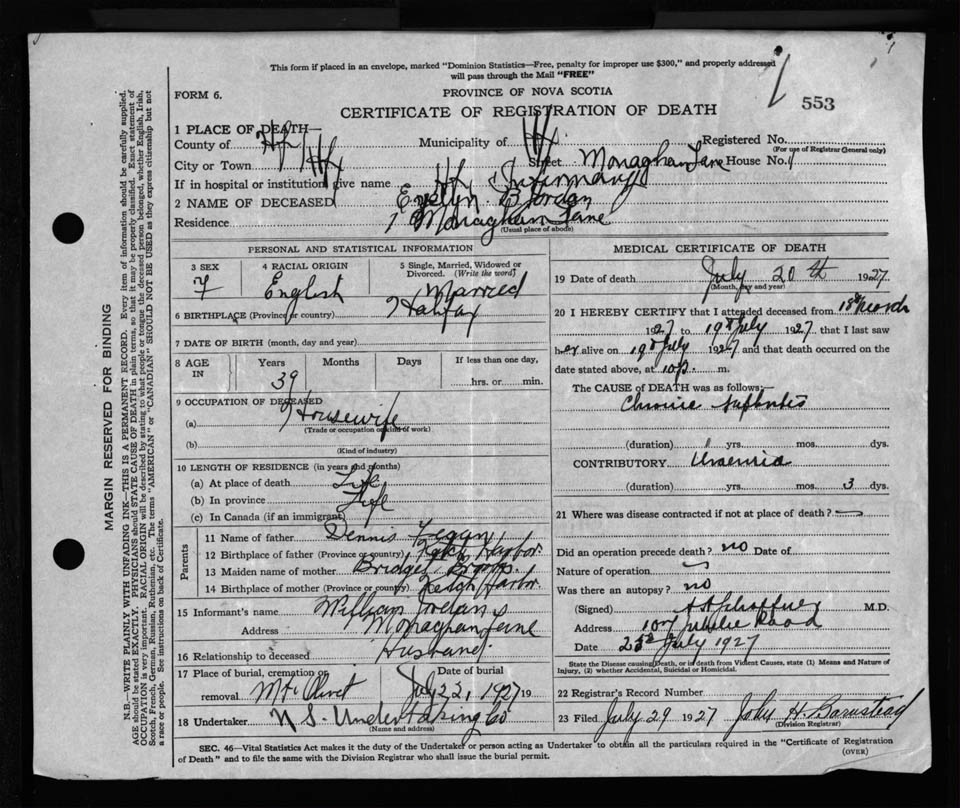 This form if placed in an envelope, marked "Dominion Statistics—Free, penalty for improper use $300," and properly addressed
will pass through the Mail "FREE"
FORM 6.
PROVINCE OF NOVA SCOTIA
553
CERTIFICATE OF REGISTRATION OF DEATH
1 PLACE OF DEATH—
County of Hfx Municipality of Hfx Registered No.
(For use of Registrar General only)
City or Town Hfx Street Monaghan Lane House No. 1
If in hospital or institution give name Hfx Infirmary
2 NAME OF DECEASED Evelyn B Jordan
Residence 1 Monaghan Lane
(Usual place of abode)
PERSONAL AND STATISTICAL INFORMATION
3 SEX 4 RACIAL ORIGIN 5 Single, Married, Widowed or
Divorced. (Write the word)
F English Married
6 BIRTHPLACE (Province or country) Halifax
7 DATE OF BIRTH (month, day and year)
8 AGE IN Years Months Days If less than one day,
39 hrs. or min.
9 OCCUPATION OF DECEASED
(a) Housewife
(Trade or occupation or kind of work)
(b)
(Kind of industry)
10 LENGTH OF RESIDENCE (in years and months)
(a) At place of death Life
(b) In province Life
(c) In Canada (if an immigrant)
Parents
11 Name of father Dennis
12 Birthplace of father (Province or country) Harbor
13 Maiden name of mother Bridget
14 Birthplace of mother (Province or country) Harbr
15 Informant's name William Jordan
Address Monaghan Lane
16 Relationship to deceased Husband
17 Place of burial, cremation or Date of burial
removal Mt Olivet July 22, 1927 19
18 Undertaker N S. Undertaking Co
(Name and address)
MEDICAL CERTIFICATE OF DEATH
19 Date of death July 20th 1927
(Month, day and year)
20 I HEREBY CERTIFY that I attended deceased from 18th March
1927 to 19th July 1927, that I last saw
her alive on 19th July 1927 and that death occurred on the
date stated above, at 10 p. m.
The CAUSE of DEATH was as follows:—
Chronic Nephritis
(duration) yrs. mos. dys.
CONTRIBUTORY Uraemia
(duration) yrs. mos. 3 dys.
21 Where was disease contracted if not at place of death?
Did an operation precede death? no Date of
Nature of operation
Was there an autopsy? no
(Signed) M.D.
Address 107 Road
Date July 1927
State the Disease causing Death, or in death from Violent Causes, state (1) Means and Nature of
Injury, (2) whether Accidental, Suicidal or Homicidal.
22 Registrar's Record Number
23 Filed July 29 1927 John H Barnstead
(Division Registrar)
SEC. 46—Vital Statistics Act makes it the duty of the Undertaker or person acting as Undertaker to obtain all the particulars required in the "Certificate of Registration
of Death" and to file the same with the Division Registrar who shall issue the burial permit.
(OVER)
MARGIN RESERVED FOR BINDING
N.B.—WRITE PLAINLY WITH UNFADING INK—THIS IS A PERMANENT RECORD. Every item of information should be carefully supplied.
AGE should be stated EXACTLY. PHYSICIANS should STATE CAUSE OF DEATH in plain terms, so that it may be properly classified. Exact statement of
OCCUPATION is very important. RACIAL ORIGIN will be described by stating to what people or tongue the deceased person belonged, whether English, Irish,
Scotch, French, German, Russian, Ruthenian, etc. The terms "AMERICAN" or "CANADIAN" SHOULD NOT BE USED as they express citizenship but not
a race or people. See instructions on back of Certificate.